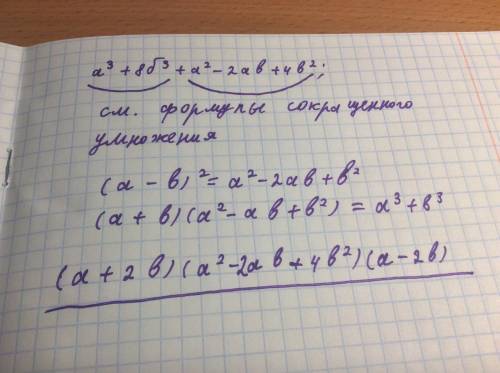 a³ + 8б³ + a² - 2ab + 4b²;
см. формулы сокращенного
умножения
(a - b)² = a² - 2ab + b²
(a + b)(a² - ab + b²) = a³ + b³
(a + 2b)(a² - 2ab + 4b²)(a - 2b)